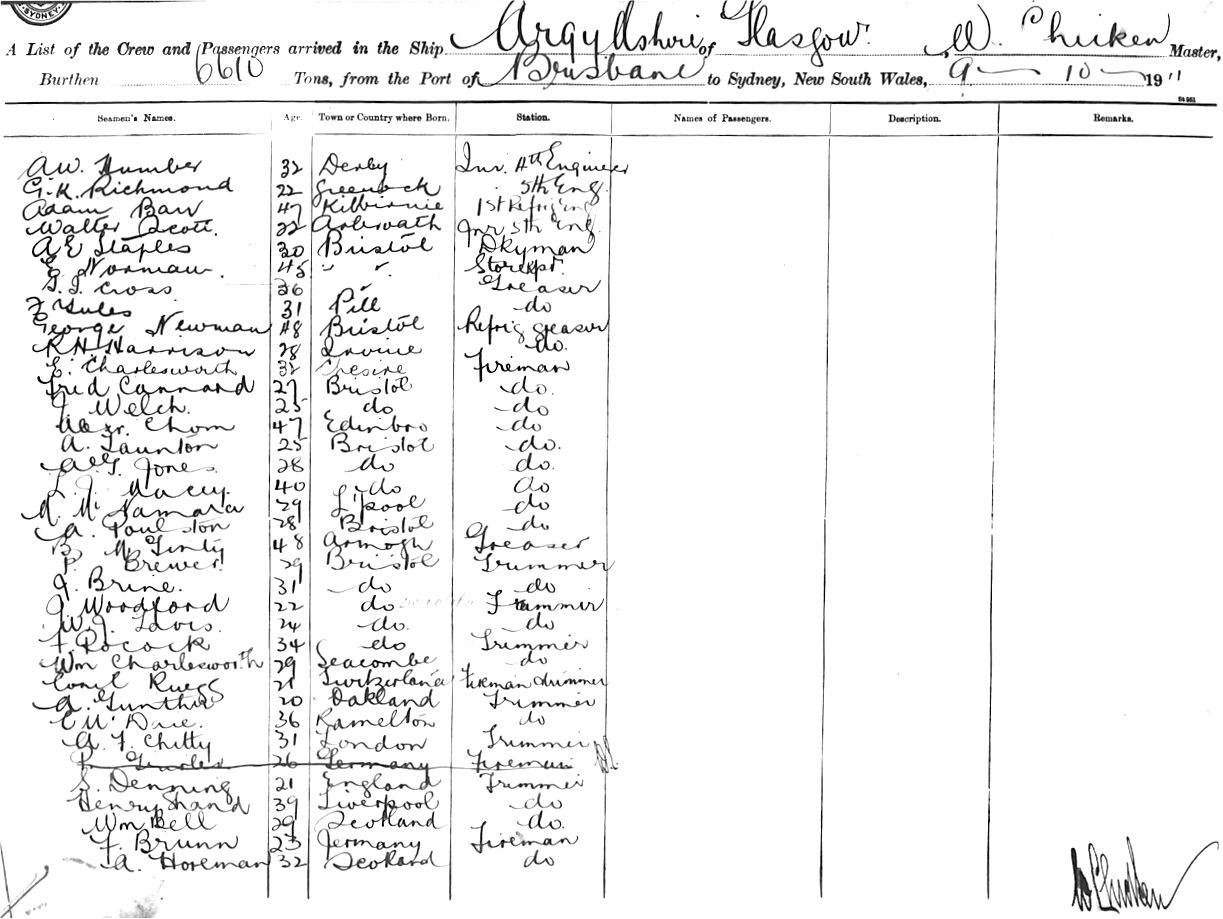 SYDNEY
A List of the Crew and Passengers arrived in the Ship Argyllshire of Glasgow W. Chicken Master,
Burthen 6610 Tons, from the Port of Brisbane to Sydney, New South Wales, 9 10 1911
St 951
Seamen's Names. Age. Town or Country where Born. Station. Names of Passengers. Description. Remarks.
A W. Humber 32 Derby Jnr. 4th Engineer
G. K. Richmond 22 Greenock 5th Eng.
Adam Barr 47 Kilbirnie 1st Refrig Eng
Walter Scott. 22 Arbroath Jnr 5th Eng.
A E Staples 30 Bristol Dkyman
E. Norman 45 " " Storekpr.
Cross 26 " Greaser
F Yules 31 Pill do
George Newman 48 Bristol Refrig greaser
R H Harrison 28 Irvine do.
E. Charlesworth 32 Chesire Fireman
Fred Cannard 27 Bristol do.
J. Welch. 25 do do
Chom 47 Edinbro do
A. Taunton 25 Bristol do.
Jones 28 do do.
L. J. Macey. 40 do do
McNamara 29 L'pool do
A. Poulston 28 Bristol do
B McGinty 48 Armogh Greaser
P. Brewer 29 Bristol Trimmer
J. Brine. 31 do do
J. Woodford 22 do Trammer
W. J. 24 do. do
F. Pocock 34 do Trimmer
Wm Charlesworth 29 Seacombe do
Ruegg 21 Switzerland Fireman trimmer
A. Gunther 20 Oakland Trimmer
36 Ramelton do
A. F. Chitty 31 London Trimmer
26 Germany Fireman
S. Denning 21 England Trimmer
Henry Shand 39 Liverpool do
Wm Bell 29 Scotland do.
F. Brunn 23 Germany Fireman
A. Horeman 32 Scotland do
W Chicken